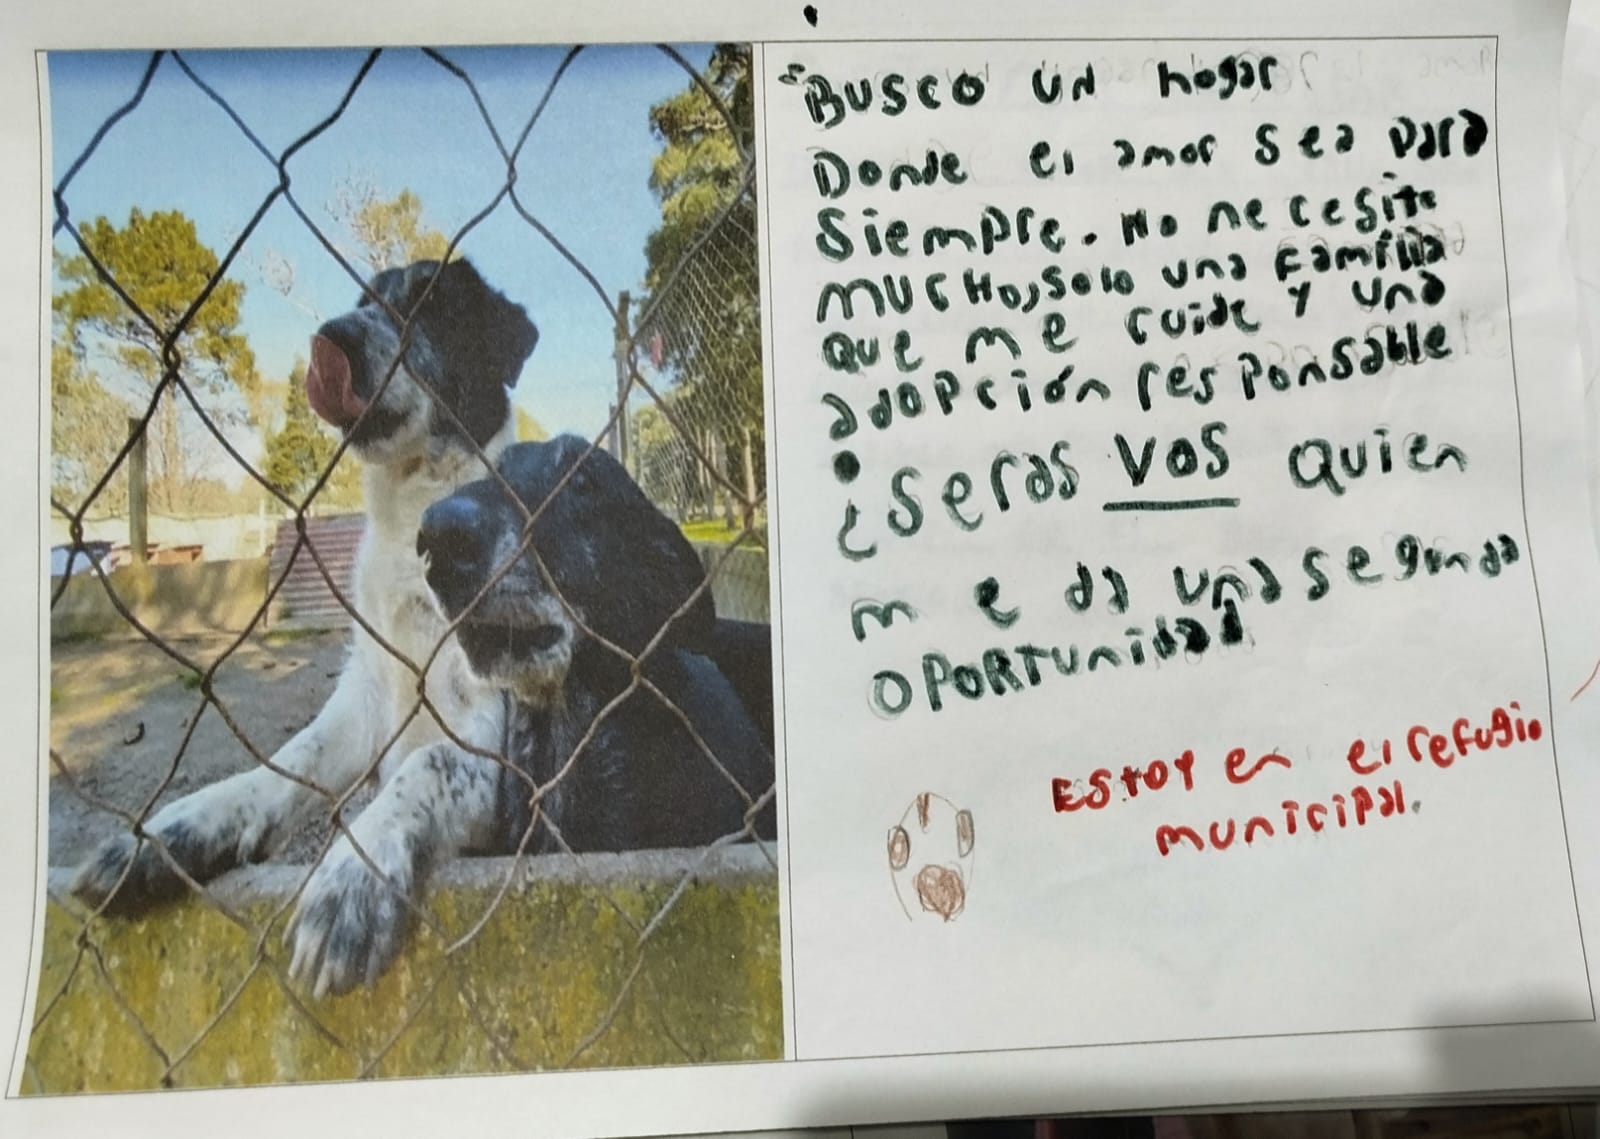 "Busco un hogar
Donde el amor sea para
siempre. No necesito
mucho, solo una familia
que me cuide y una
adopción responsable
.
¿Seras VOS quien
me da una segunda
oportunidad
Estoy en el refugio
municipal.